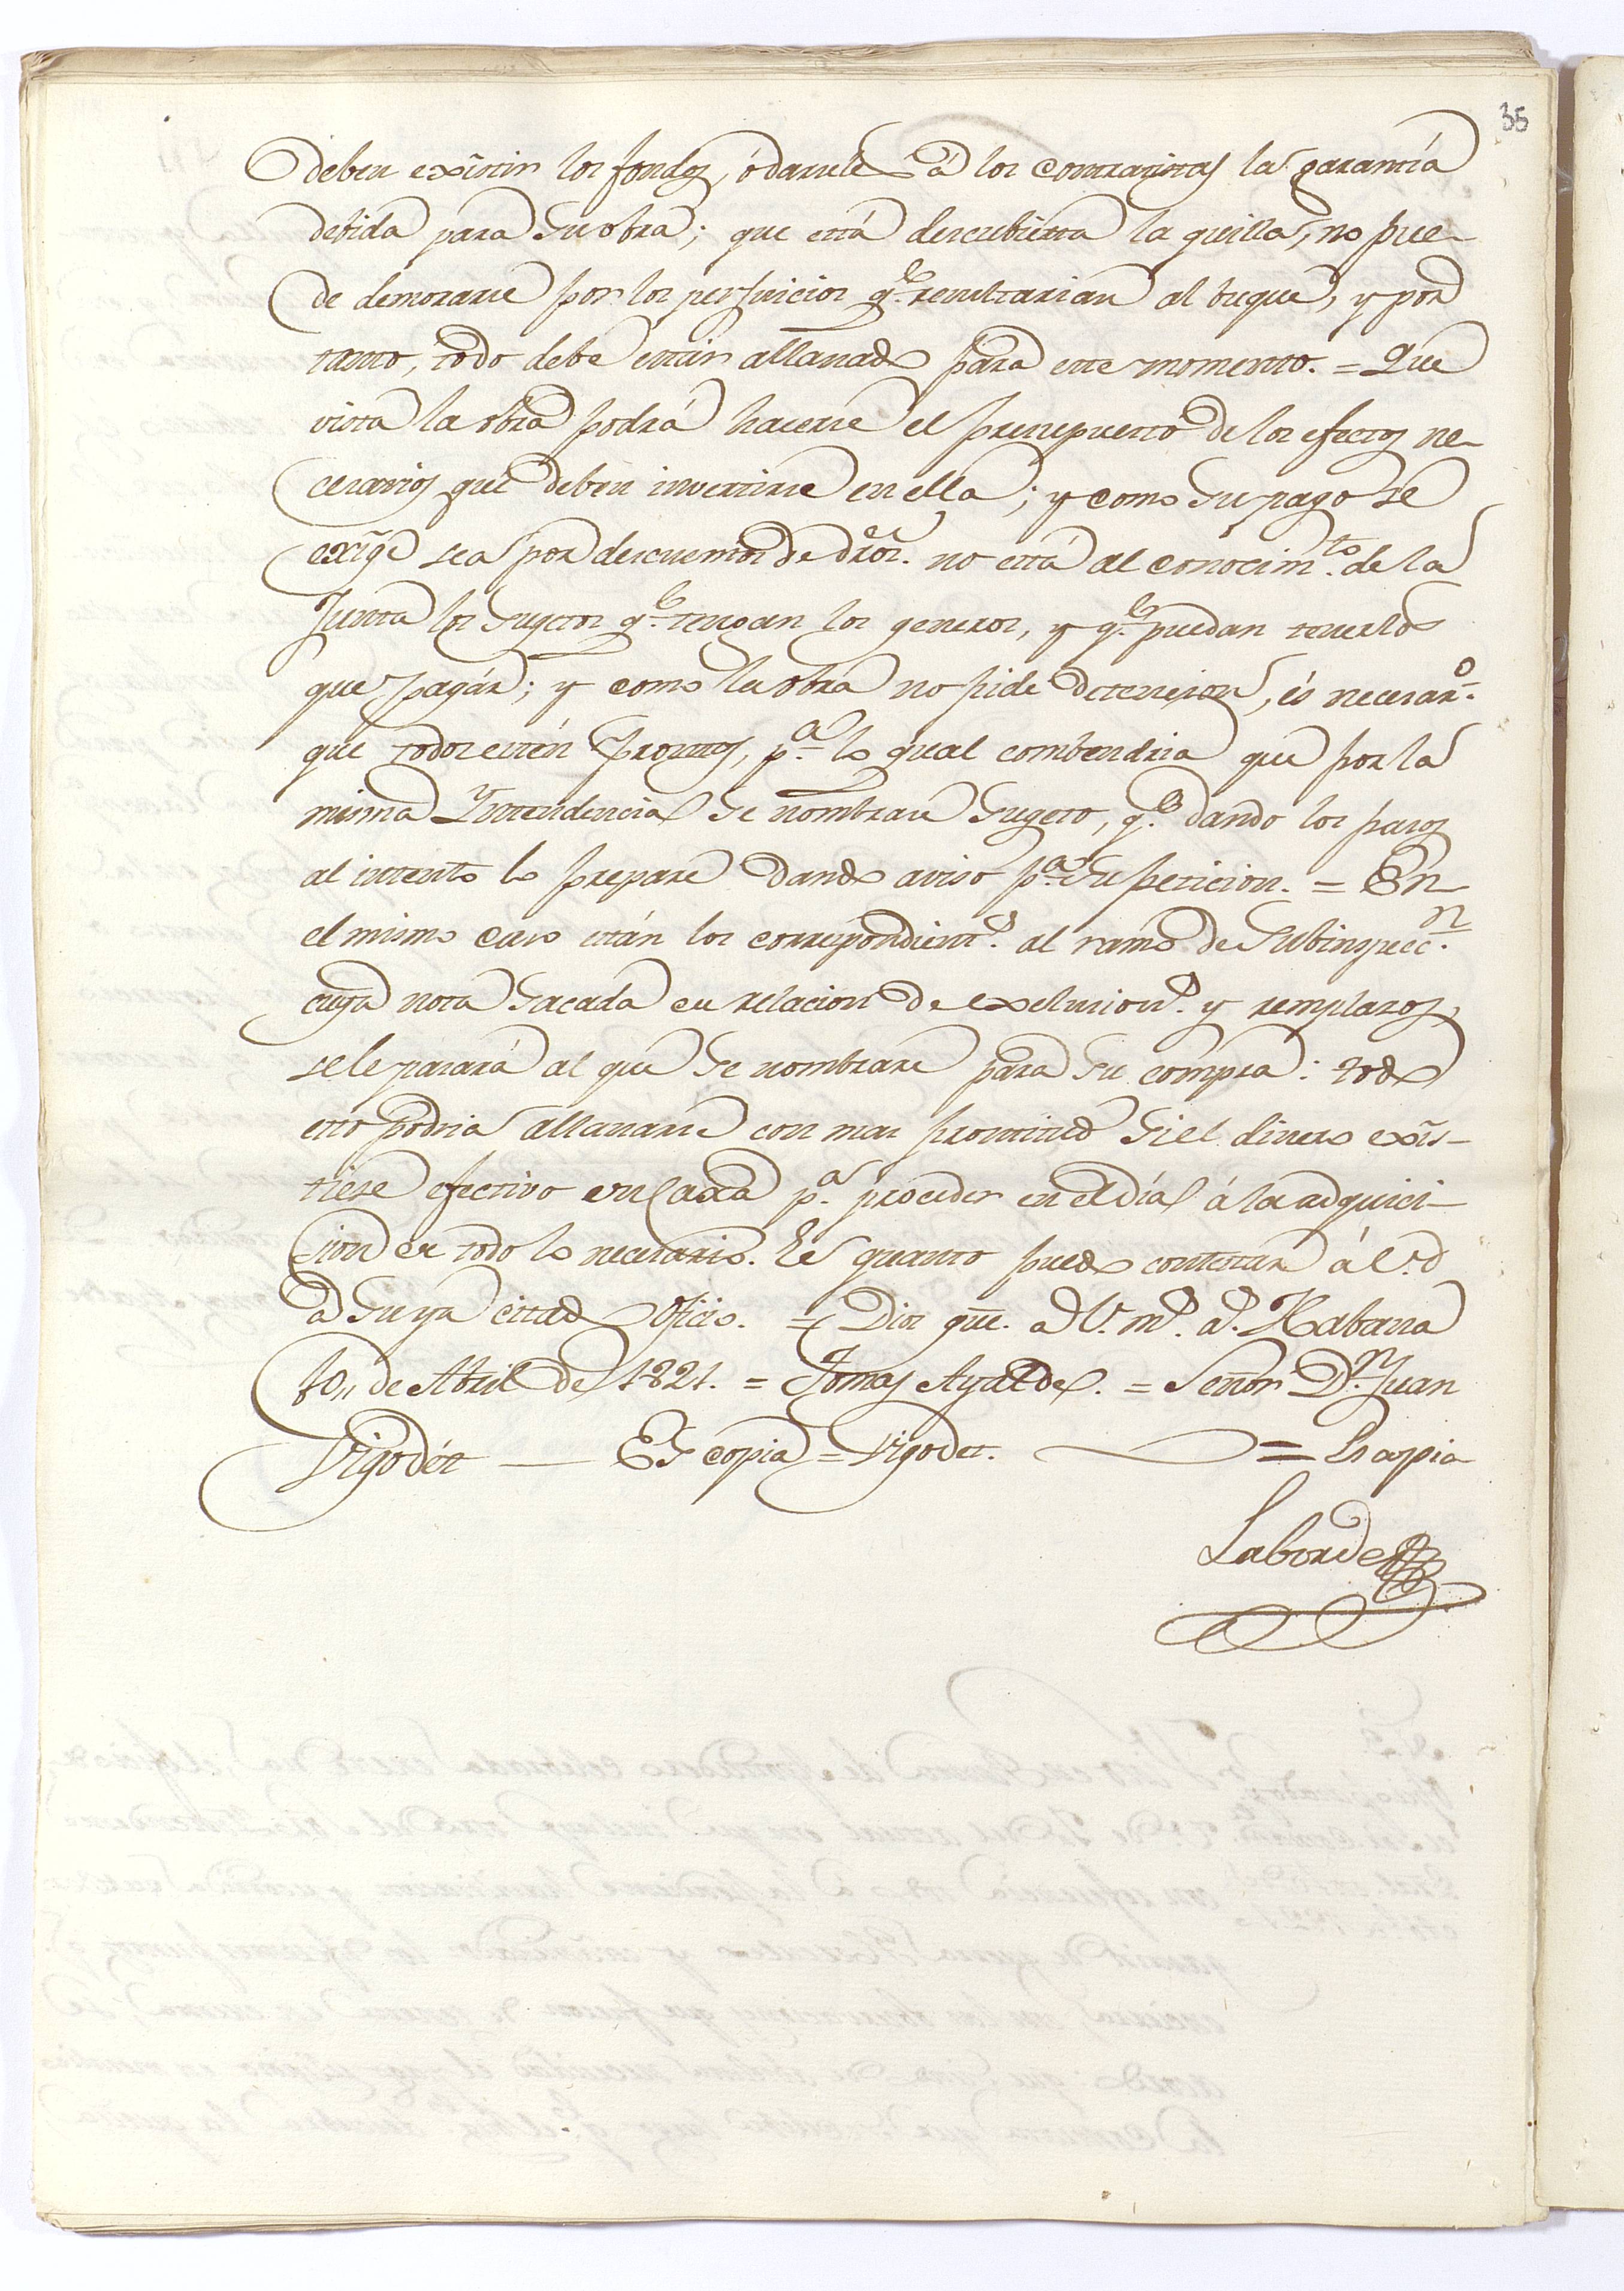 35
deben exîstir los fondos, ó darsele á los contratistas la garantía
debida para su obra; que está descubierta la quilla, no pue-
de demorarse por los perjuicios q.e resultarian al buque, y por
tanto, todo debe estár allanado para este momento. = Que
vista la obra podrá hacerse el presupuesto de los efectos ne-
cesarios que deben invertirse en ella; y como su pago se
exîge sea por descuentos de dros. no está al conocim.to de la
Junta los sugetos q.e tengan los generos, y q.e puedan tenerlos
que pagár; y como la obra no pide detencion, és necesar.o
que todos estén prontos, p.a lo qual combendria que por la
misma Intendencia se nombrase sugeto, q.e dando los pasos
al intento lo prepare dando aviso p.a su peticion. = En
el mismo caso están los correspondient.s al ramo de Subinspecc.n
cuya nota sacada en relacion de exclusion.s y remplazos,
se le pasará al que se nombrare para su compra: todo
esto podria allanarse con mas prontitud si el dinero exîs-
tiese efectivo en Caxa p.a proceder en el día á la adquici-
sion de todo lo necesario. Es quanto puedo contestar á V.S.
a su ya citado Oficio. = Dios gûe. a V. m.s a.s Habana
10,, de Abril de 1821. = Tomas Ayalde. = Señor D.n Juan
Vigodét — Es copia = Vigodet. = Es copia
Laborde